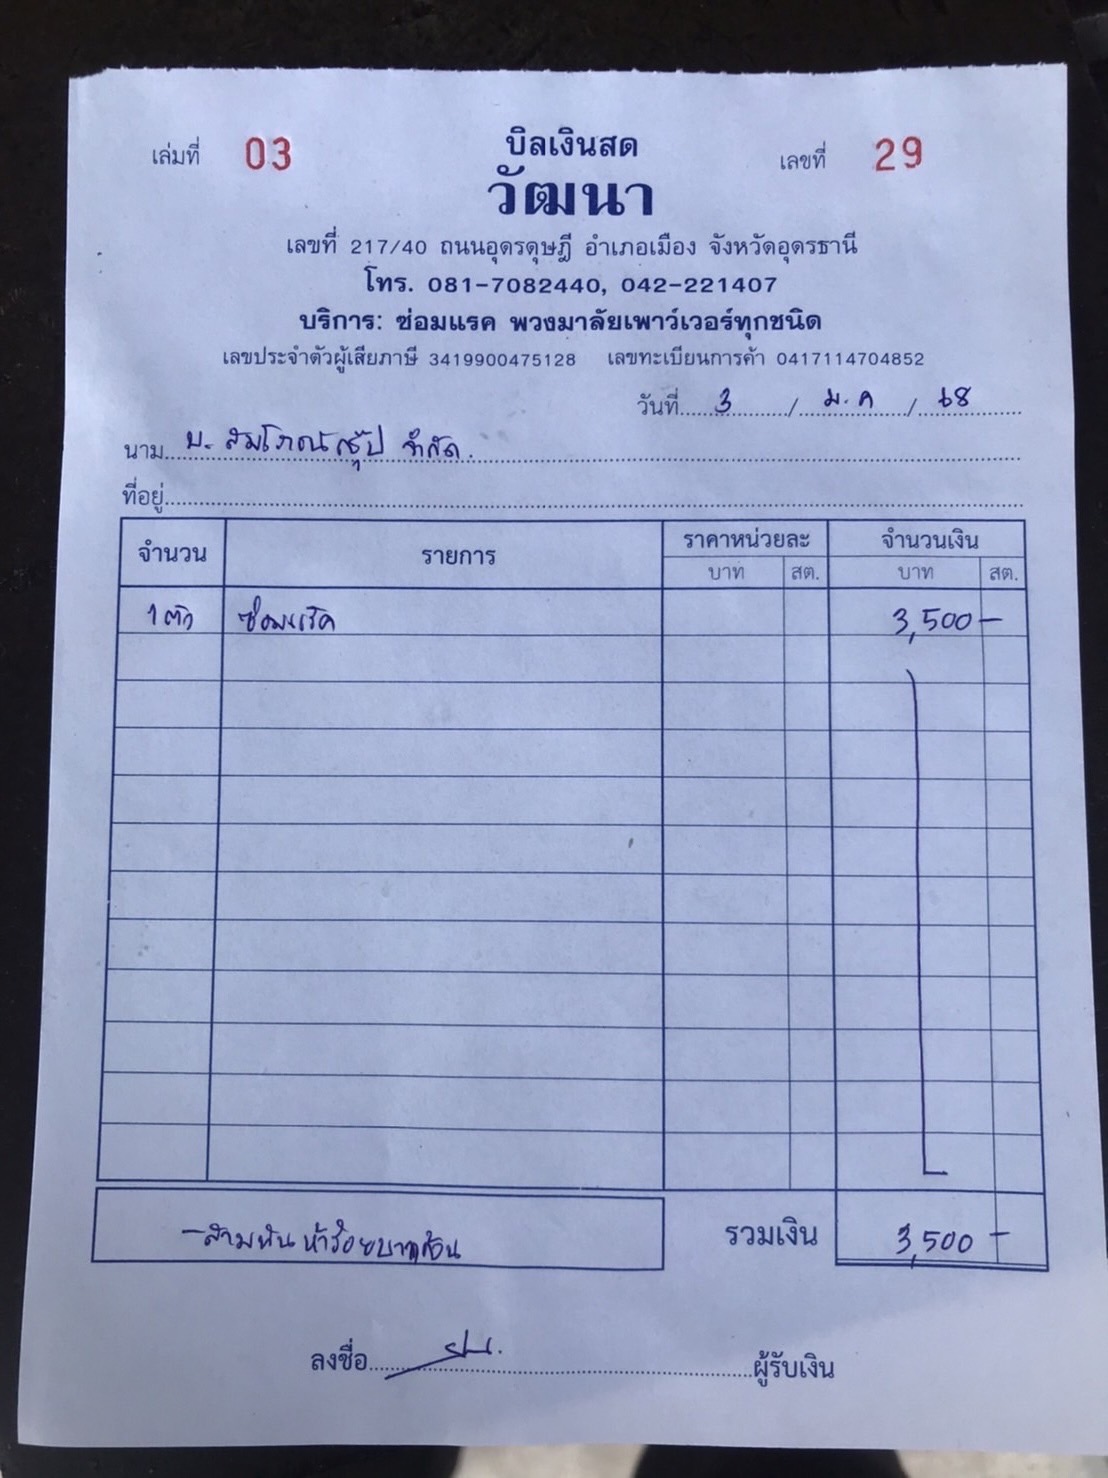 เล่มที่ 03 บิลเงินสด เลขที่ 29
วัฒนา
เลขที่ 217/40 ถนนอุดรดุษฎี อำเภอเมือง จังหวัดอุดรธานี
โทร. 081-7082440, 042-221407
บริการ: ซ่อมแรค พวงมาลัยเพาว์เวอร์ทุกชนิด
เลขประจำตัวผู้เสียภาษี 3419900475128 เลขทะเบียนการค้า 0417114704852
วันที่ 3 / ม.ค / 68
นาม บ. จำกัด.
ที่อยู่
จำนวน รายการ ราคาหน่วยละ จำนวนเงิน
บาท สต. บาท สต.
1 ตัว ซ่อมแร็ค 3,500 -
- สามพันห้าร้อยบาทถ้วน รวมเงิน 3,500 -
ลงชื่อ ผู้รับเงิน